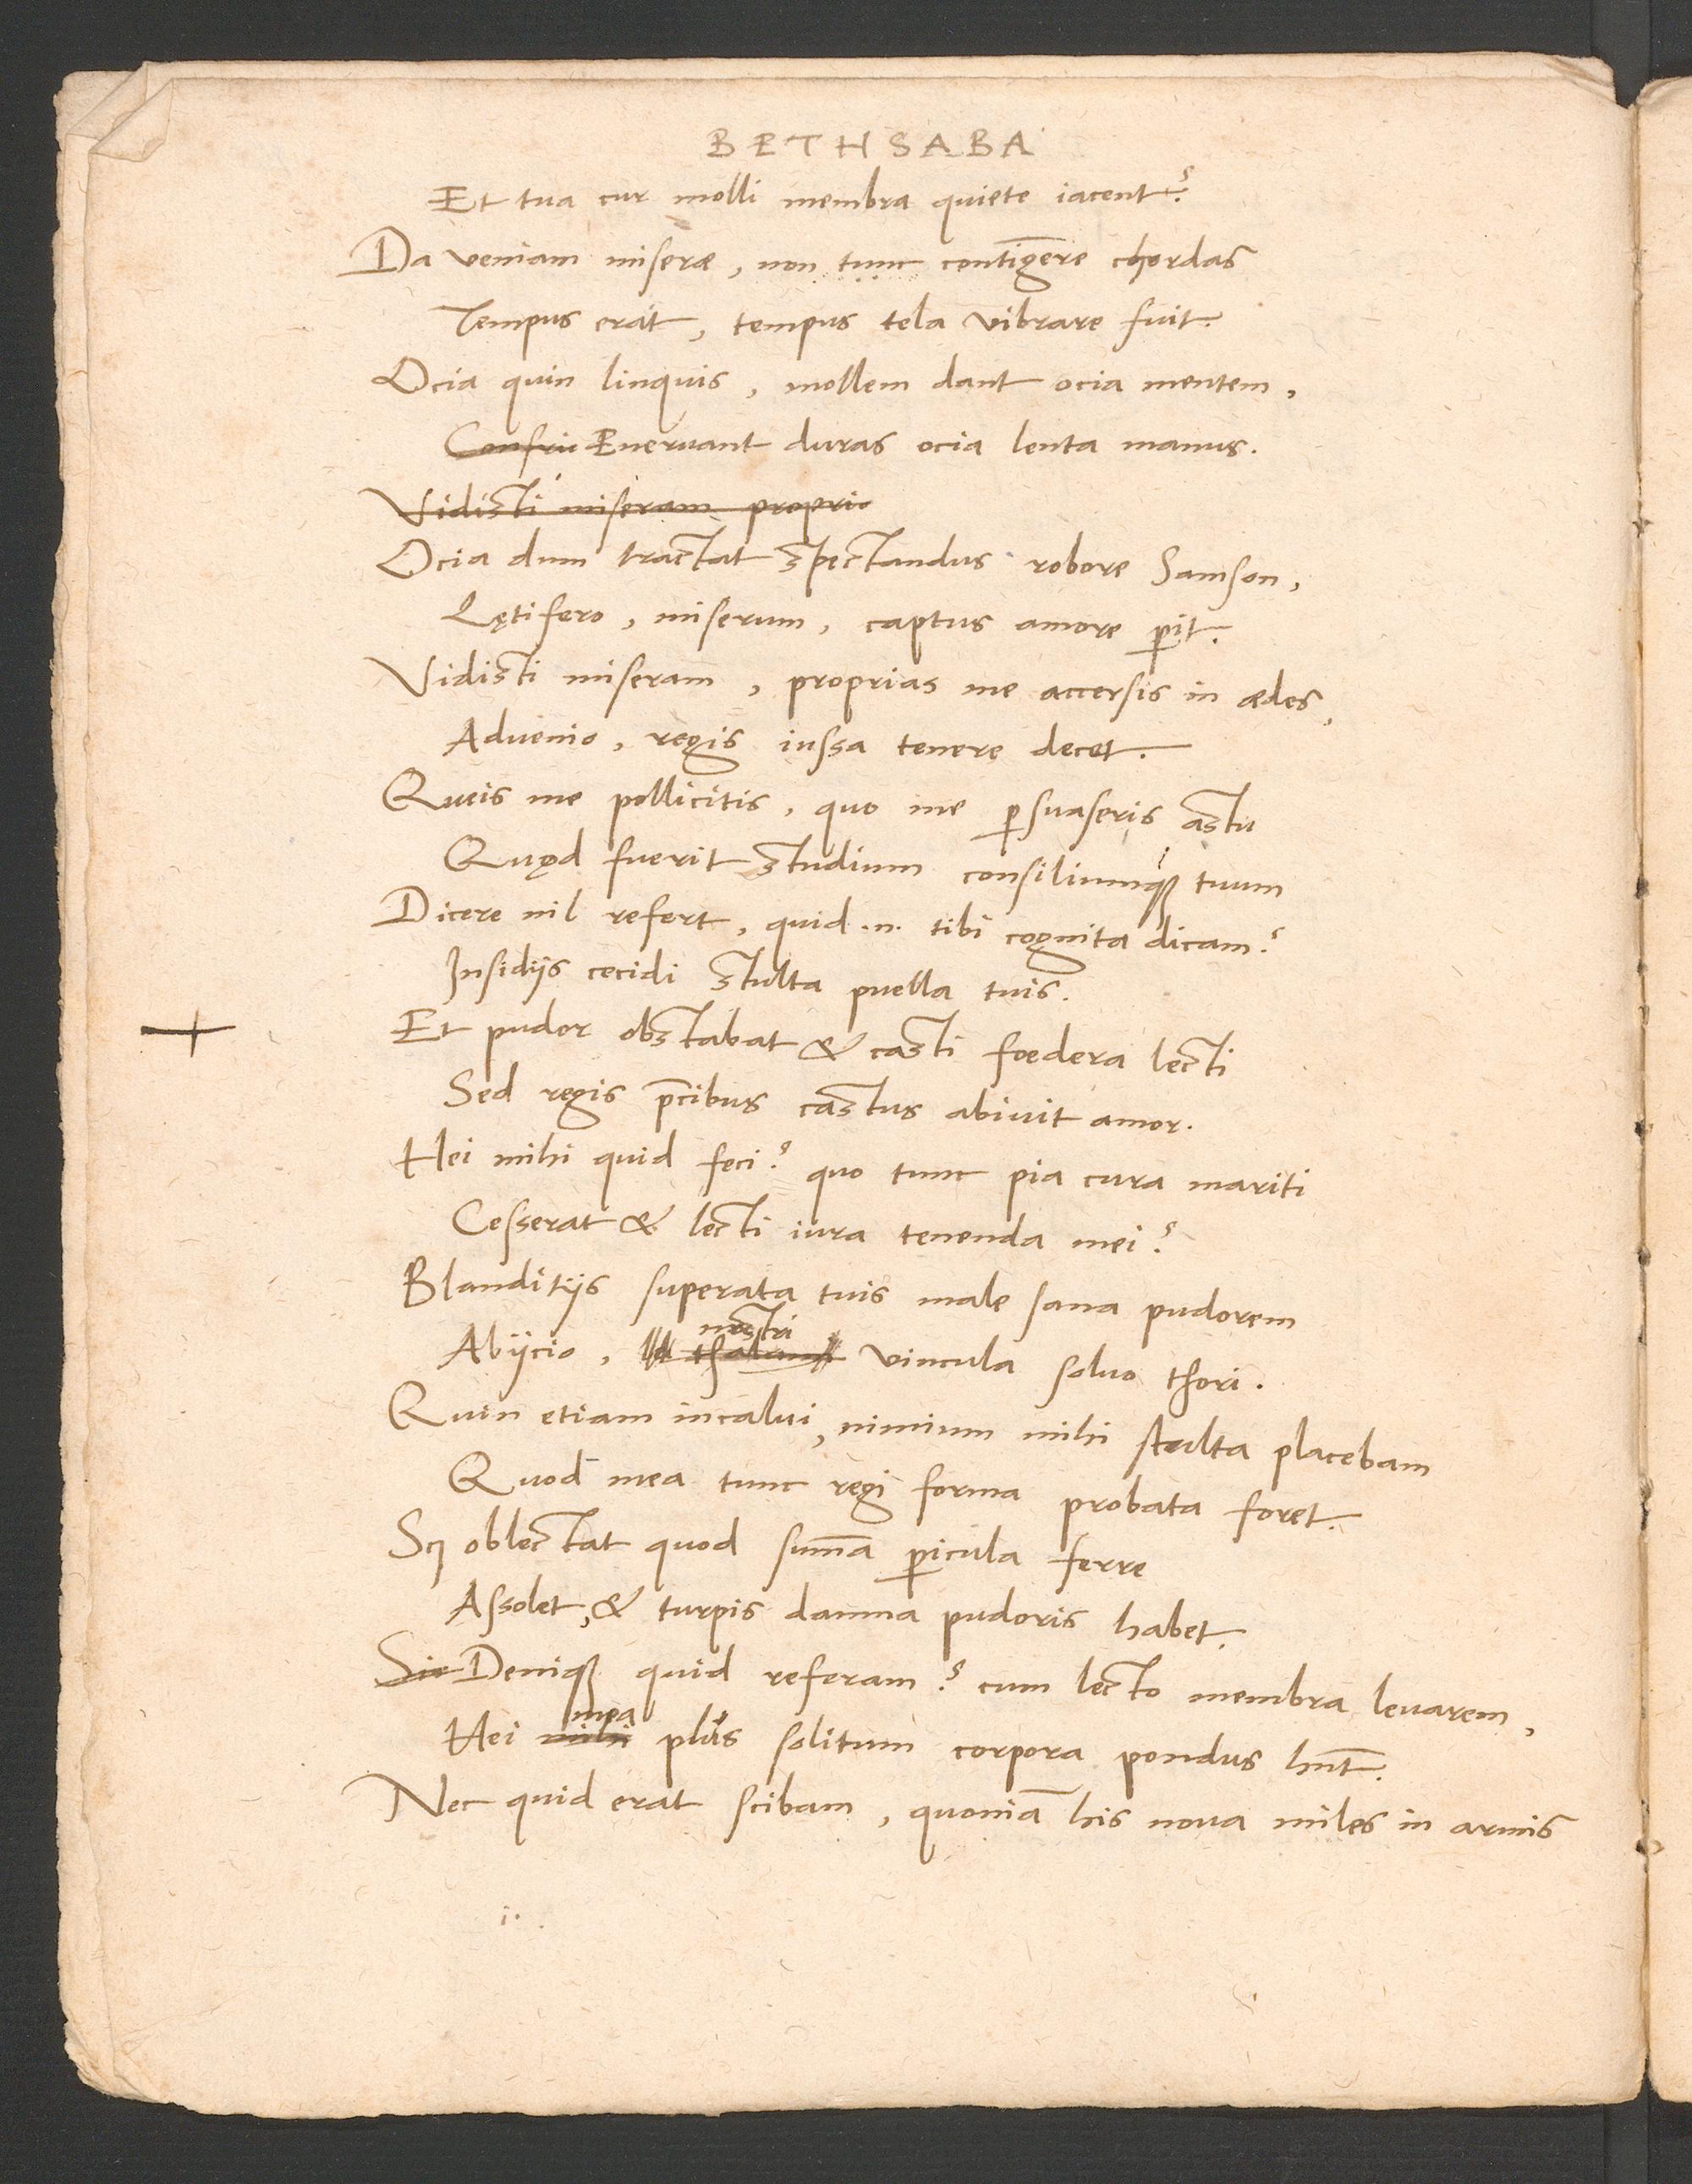 BETHSABA
Et tua cur molli membra quiete iacent?
Da veniam miseræ, non tunc contīgere chordas
Tempus erat, tempus tela vibrare fuit.
Ocia quin linquis, mollem dant ocia mentem,
Enervant duras ocia lenta manus.
Vidisti miseram proprio
Ocia dum tractat spectandus robore Samson,
Lętifero, miserum, captus amore perit.
Vidisti miseram, proprias me accersis in ædes,
Advenio, regis iussa tenere decet.
Queis me pollicitis, quo me persuaseris astu
Quod fuerit studium consiliumque tuum
Dicere nil refert, quid .n. tibi cognita dicam?
Insidijs cecidi stulta puella tuis.
Et pudor obstabat & casti foedera lecti
Sed regis p̄cibus castus abivit amor.
Hei mihi quid feci? quo tunc pia cura mariti
Cesserat & lecti iura tenenda mei?
Blanditijs superata tuis male sana pudorem
Abijcio, thalami nostri vincula solvo thori.
Quin etiam incalui, nimium mihi stulta placebam
Quod mea tunc regi forma probata foret.
Scꝫ oblectat quod sum̄a pericula ferre
Assolet, & turpis damna pudoris habet.
Sic Denique quid referam? cum lecto membra levarem,
Hei mihi mea plus solitum corpora pondus hn̄t.
Nec quid erat scibam, quoniā his nova miles in armis